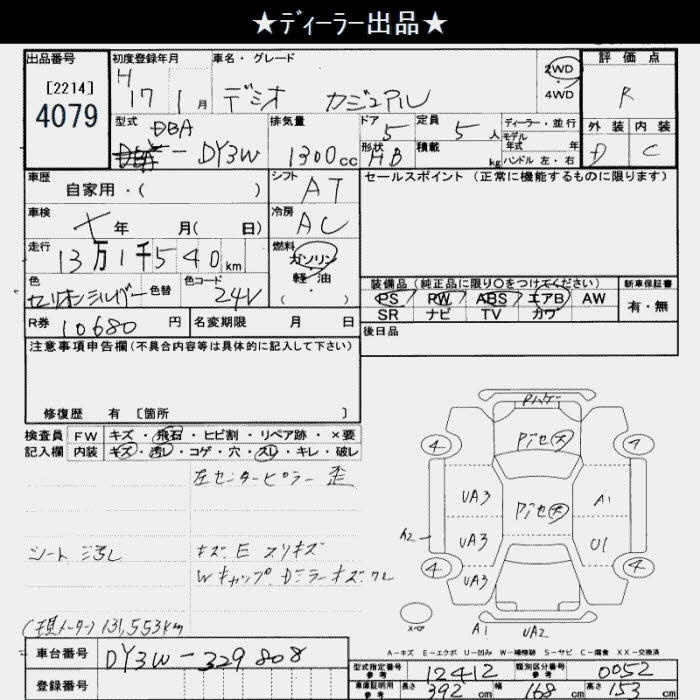 ★ディーラー出品★
出品番号 初度登録年月 車名・グレード 2WD 評価点
[2214] H 17 1月 デミオ カジュアル 4WD R
4079 型式 DBA 排気量 ドア 定員 ディーラー・並行 外装 内装
DBA-DY3W 1300cc 5 5人 モデル年式 年 D C
形状 HB 積載 kg ハンドル 左・右
車歴 自家用・( ) シフト AT セールスポイント (正常に機能するものに限ります)
車検 年 月( 日) 冷房 AC
走行 13万1千540km 燃料 ガソリン
軽・油
( ・ )
色 セリオンシルバー 色替 色コード 24V 装備品 (純正品に限り○をつけてください) 新車保証書
PS PW ABS エアB AW 有・無
SR ナビ TV カワ
R券 10680円 名変期限 月 日 後日品
注意事項申告欄(不具合内容等は具体的に記入して下さい)
修復歴 有 [箇所 ]
検査員 FW キズ・飛石・ヒビ割・リペア跡・×要
記入欄 内装 キズ・汚レ・コゲ・穴・スレ・キレ・破レ
左センターピラー 歪
シート 汚レ キズ E スリキズ
Wキャップ Dミラーキズ ワレ
(現メーター) 131,553km
4 4 4 4
UA3 UA3 UA3
A1 U1
A2
A1 UA2
スペア
A-キズ E-エクボ U-凹み W-補修跡 S-サビ C-腐食 XX-交換済
車台番号 DY3W-329808
登録番号
型式指定番号 参考 12412 類別区分番号 参考 0052
車庫証明用 参考 長さ 392cm 幅 168cm 高さ 153cm